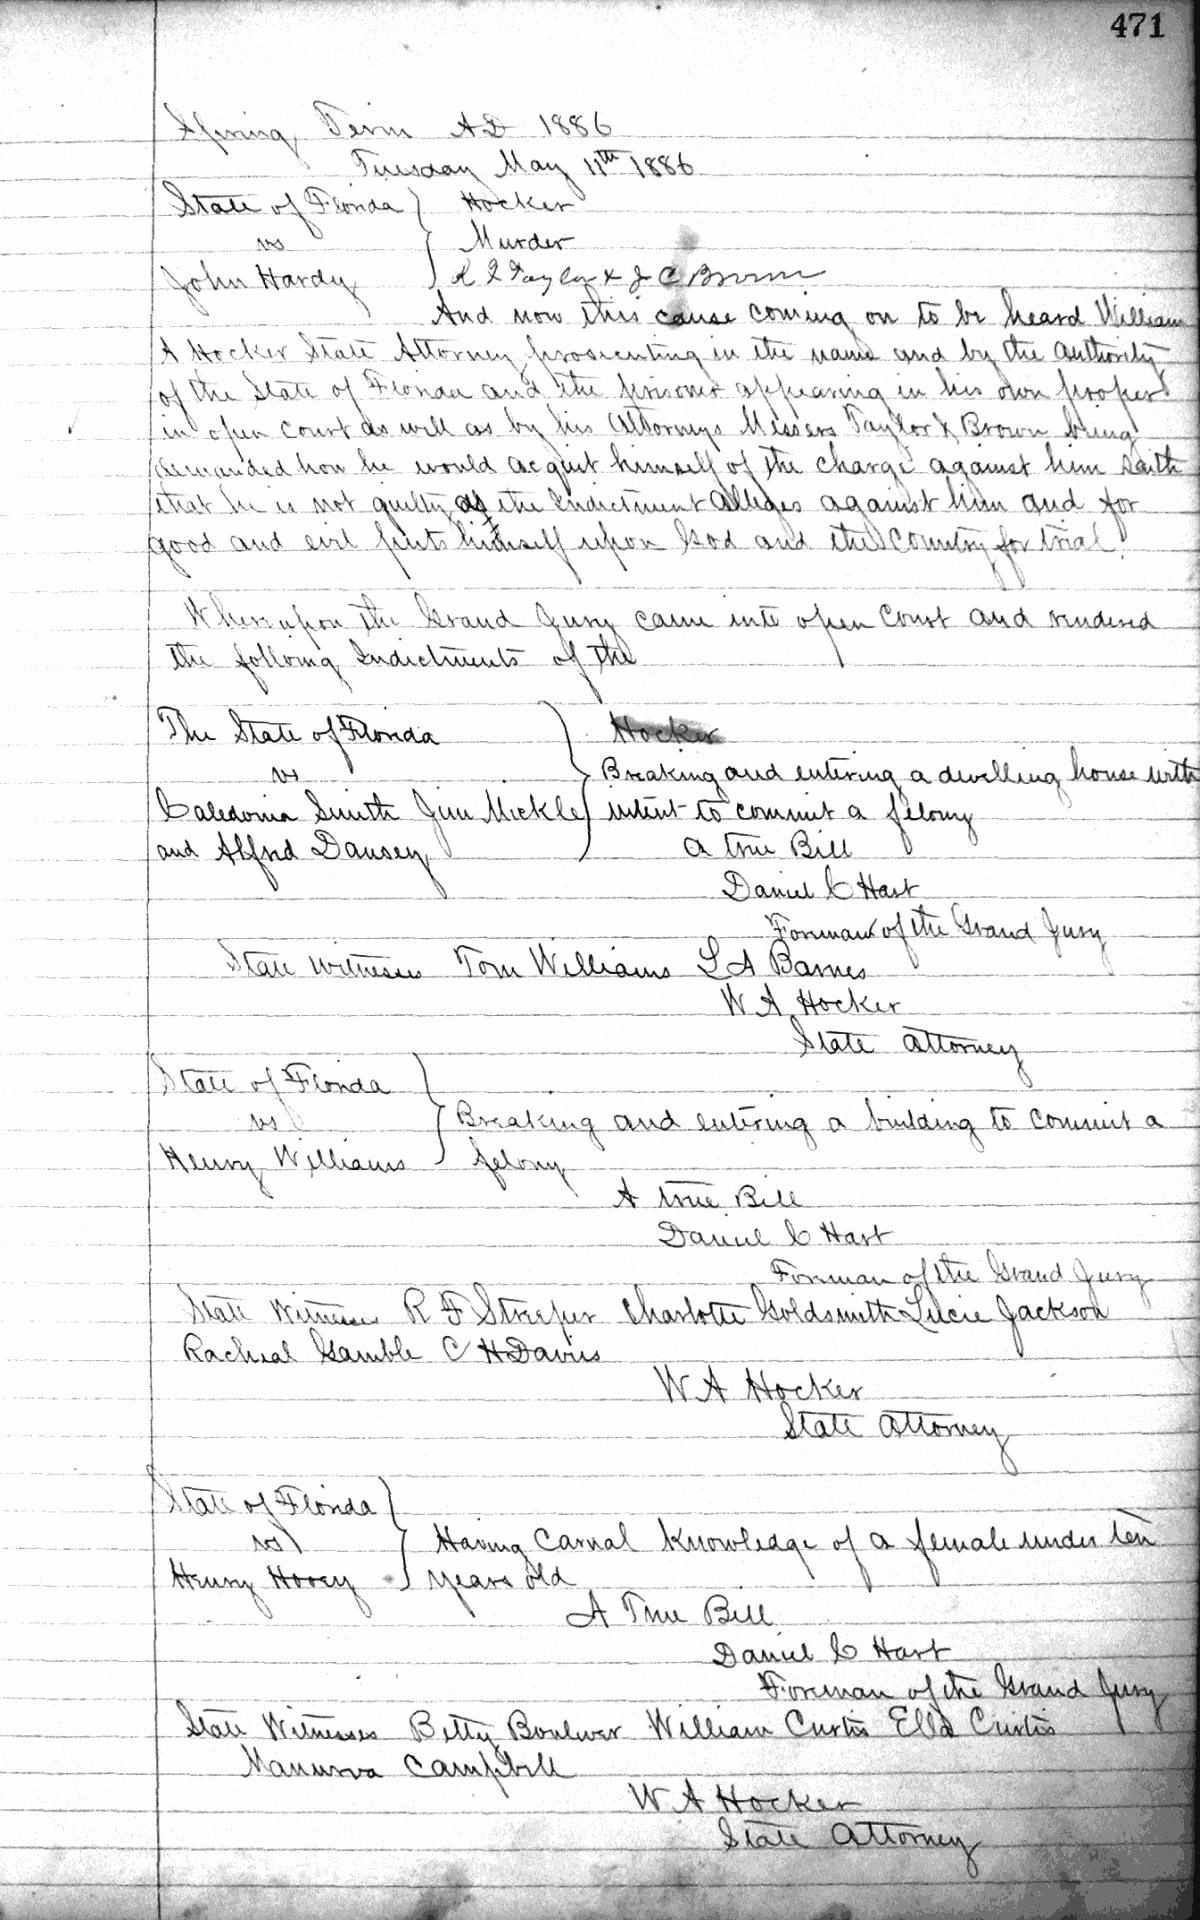 471
Spring Term AD 1886
Tuesday May 11th 1886
State of Florida } Hocker
vs } Murder
John Hardy } R L Taylor & J C Brown
And now this cause coming on to be heard William
A Hocker State Attorney prosecuting in the name and by the authority
of the State of Florida and the prisoner appearing in his own proper
in open court as well as by his Attorneys Messers Taylor & Brown being
demanded how he would acquit himself of the charge against him saith
that he is not guilty as the Indictment Alleges against him and for
good and evil puts himself upon God and the Country for trial.
Whereupon the Grand Jury came into open Court and rendered
the following Indictments of the
The State of Florida } Hocker
vs } Breaking and entering a dwelling house with
Caledonia Smith Jim Mickle } intent to commit a felony
and Alfred Dansey } A true Bill
Daniel C Hart
Forman of the Grand Jury
State witnesses Tom Williams L A Barnes
W A Hocker
State Attorney
State of Florida }
vs } Breaking and entering a building to commit a
Henry Williams } felony
A true Bill
Daniel C Hart
Forman of the Grand Jury
State Witnesses R F Streeper Charlotte Goldsmith Lucie Jackson
Racheal Gamble C H Davies
W A Hocker
State Attorney
State of Florida }
vs } Having Carnal Knowledge of a female under ten
Henry } years old
A True Bill
Daniel C Hart
Forman of the Grand Jury
State Witnesses Betty Boulwer William Curtis Ella Curtis
Manurva Campbell
W A Hocker
State Attorney